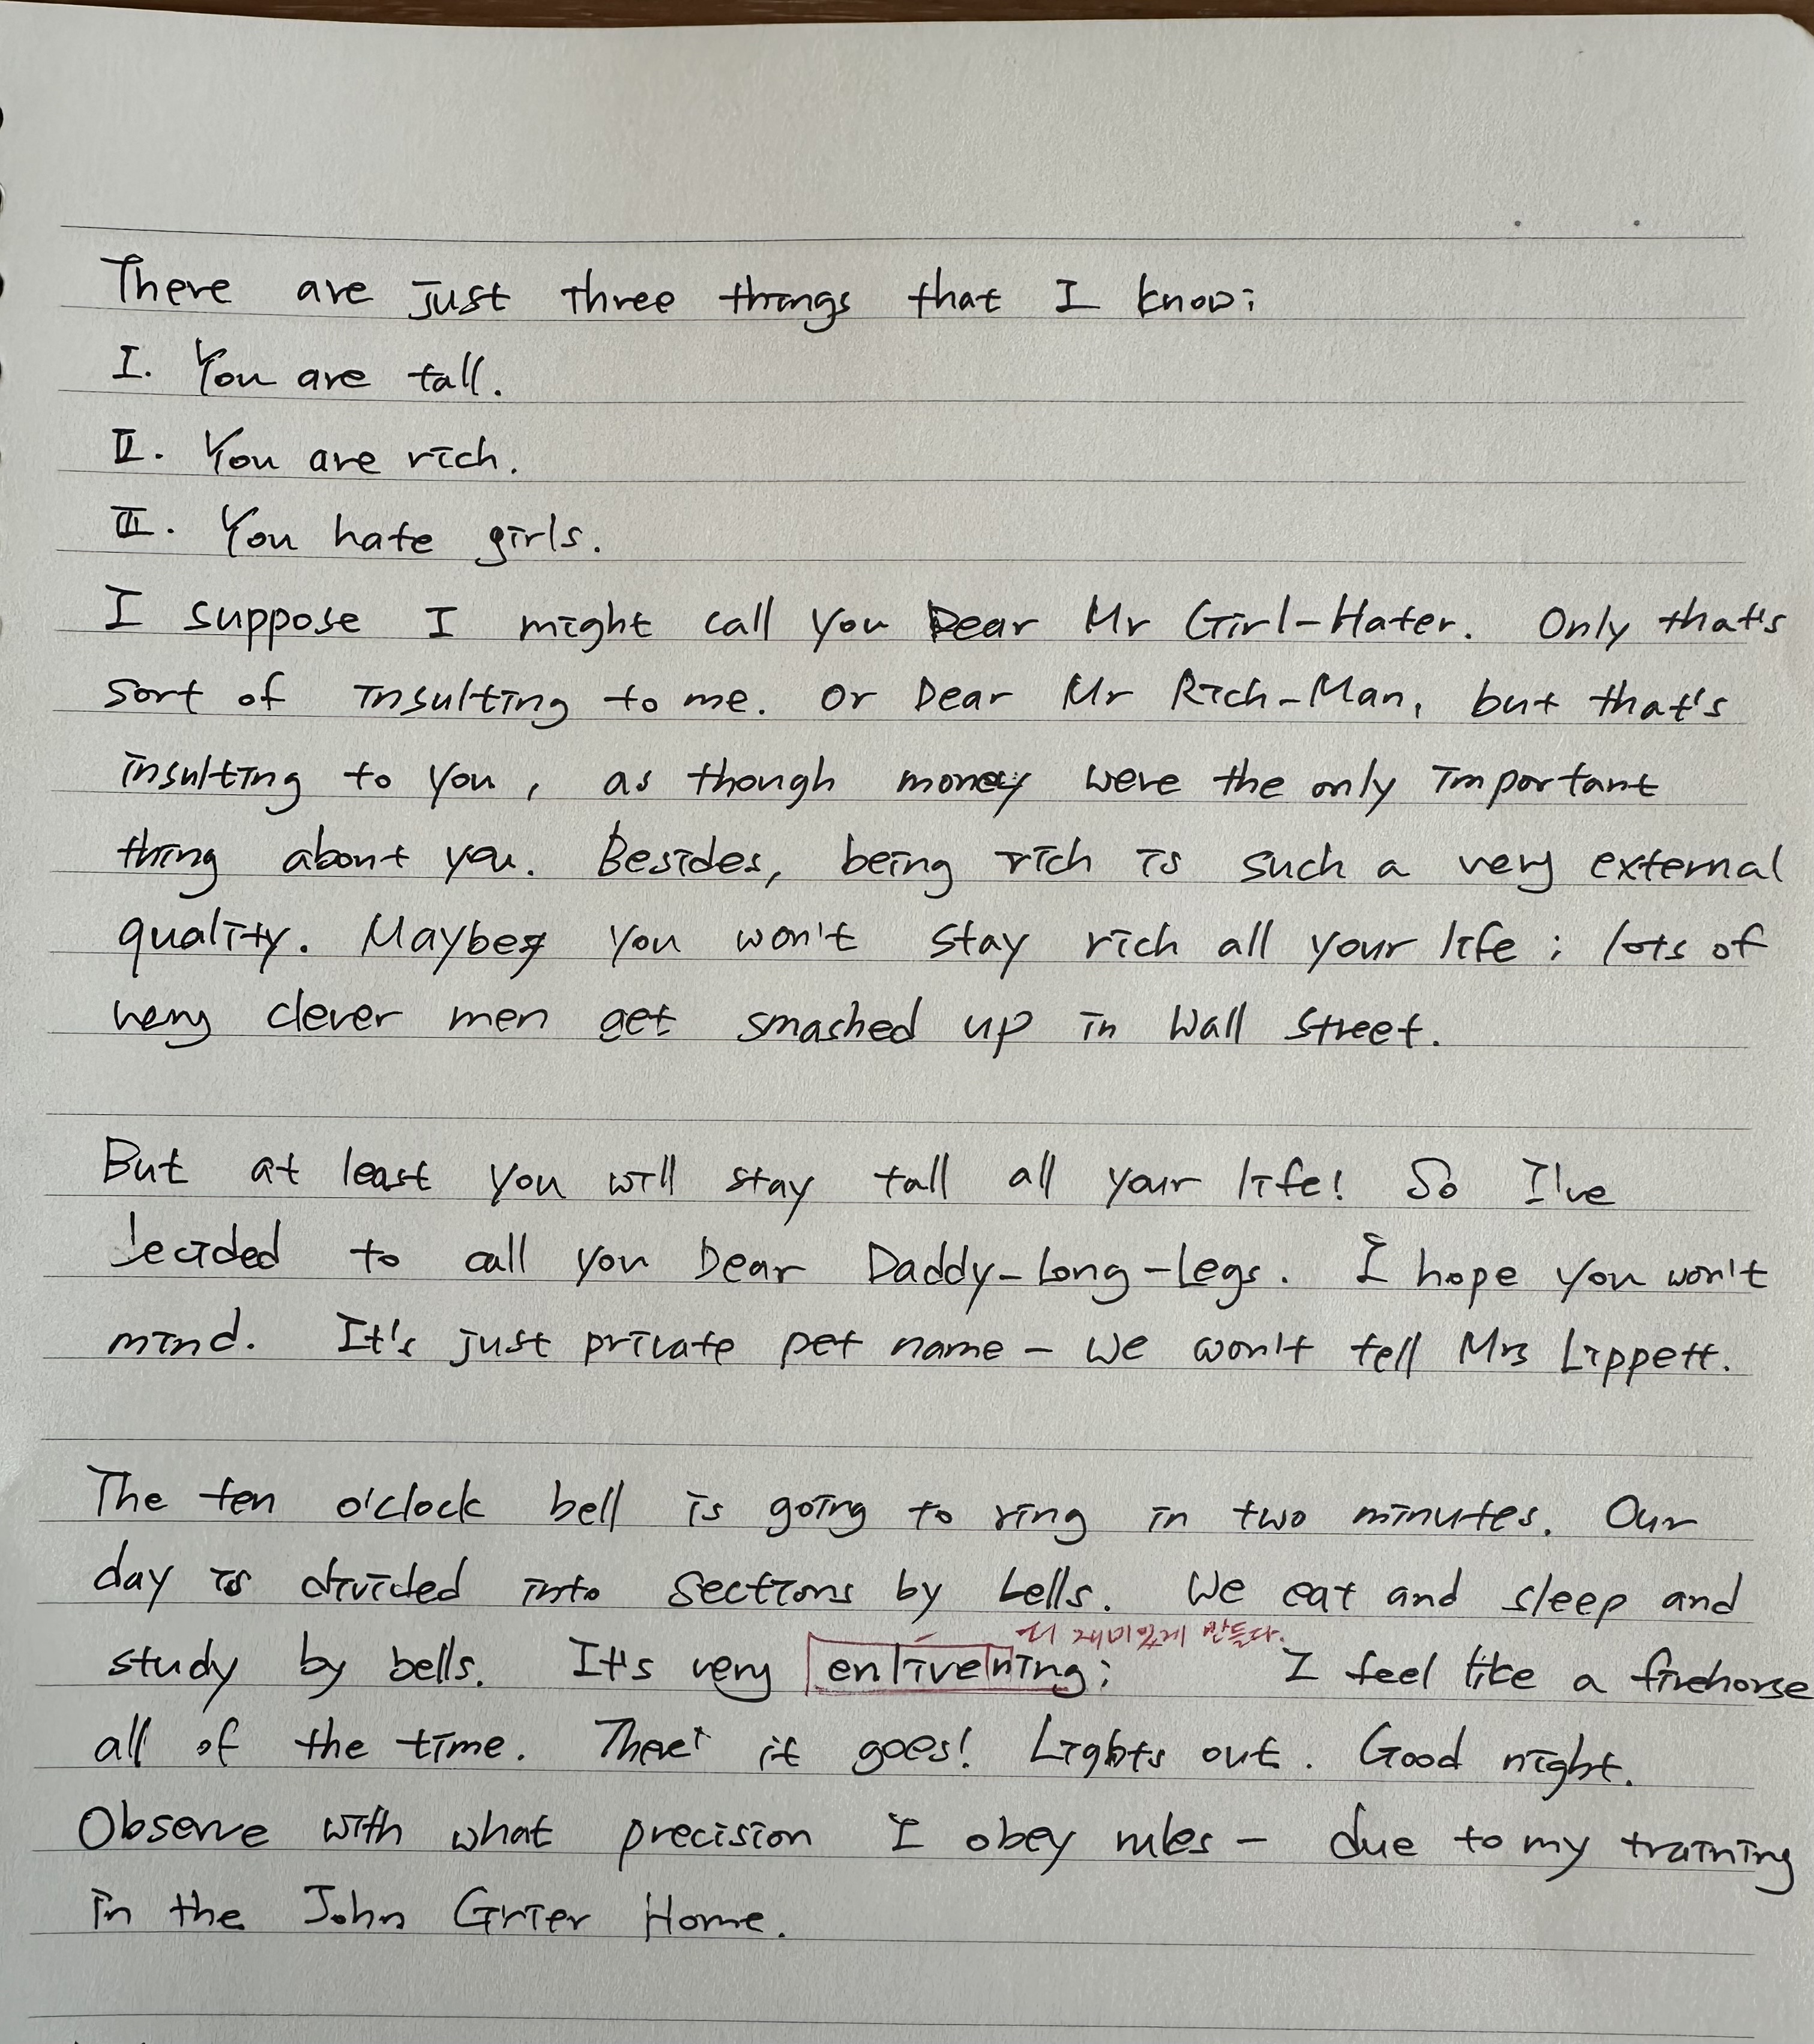 There are just three things that I know:
I. You are tall.
II. You are rich.
III. You hate girls.
I suppose I might call you Dear Mr Girl-Hater. Only that's
sort of insulting to me. Or Dear Mr Rich-Man, but that's
insulting to you, as though money were the only important
thing about you. Besides, being rich is such a very external
quality. Maybe you won't stay rich all your life; lots of
very clever men get smashed up in Wall Street.
But at least you will stay tall all your life! So I've
decided to call you Dear Daddy-Long-Legs. I hope you won't
mind. It's just private pet name - we won't tell Mrs Lippett.
The ten o'clock bell is going to ring in two minutes. Our
day is divided into sections by bells. We eat and sleep and
더 재미있게 만들다.
study by bells. It's very enlivening; I feel like a firehorse
all of the time. There it goes! Lights out. Good night.
Observe with what precision I obey rules - due to my training
in the John Grier Home.